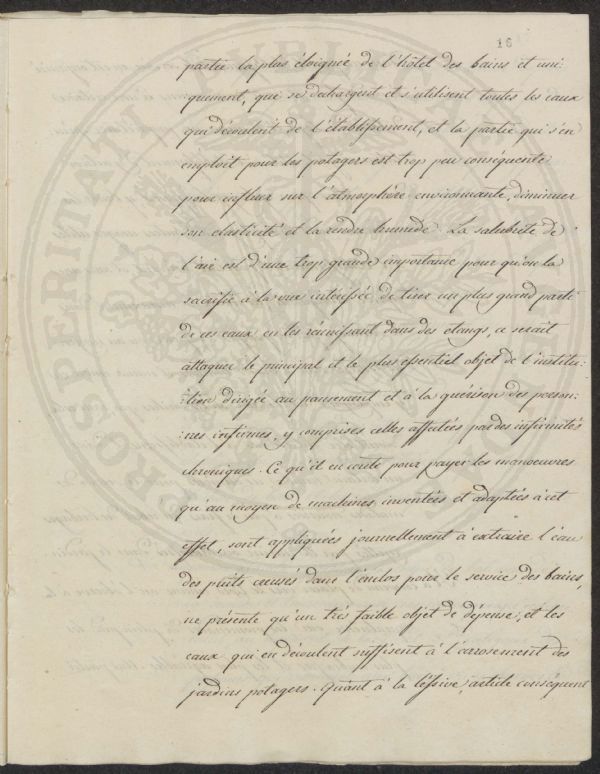 16
partie la plus éloignée de l'hôtel des bains et uni-
quement, que se déchargent et s'utilisent toutes les eaux
qui découlent de l'établissement, et la partie qui s'en
emploit pour les potagers est trop peu conséquente
pour influer sur l'atmosphère environnante, diminuer
son élasticité et la rendre humide. La salubrité de
l'air est d'une trop grande importance pour qu'on la
sacrifie à la vue intéressée de tirer un plus grand parti
de ces eaux en les réunissant dans des étangs, ce serait
attaquer le principal et le plus essentiel objet de l'institu-
:tion dirigée au pansement et à la guérison des person-
:nes infirmes, y comprises celles affectées par des infirmités
chroniques. Ce qu'il en coute pour payer les manoeuvres
qu'au moyen de machines inventées et adaptées à cet
effet, sont appliquées journellement à extraire l'eau
des puits creusés dans l'enclos pour le service des bains,
ne présente qu'un très faible objet de dépense, et les
eaux qui en découlent suffisent à l'arrosement des
jardins potagers. Quant à la léssive, article conséquent
PROSPERITATI